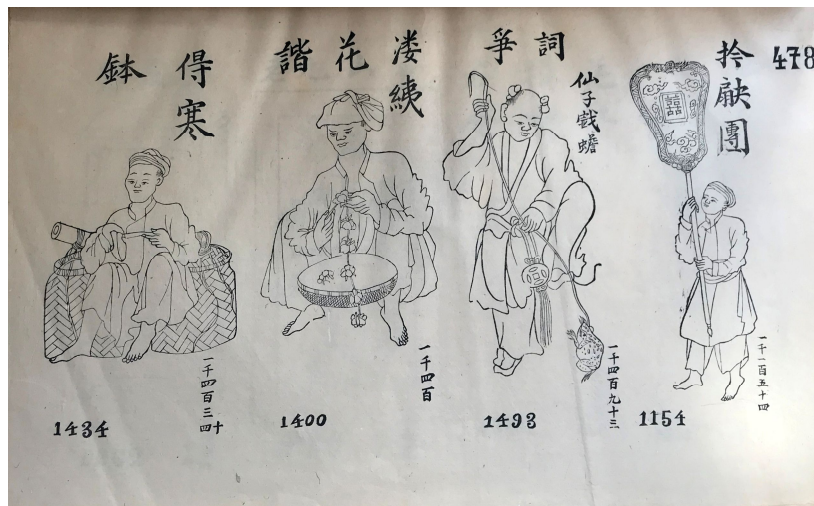 478
拎團
一千一百五十四
1154
詞爭
仙子戲蟾
一千四百九十三
1493
花諧
一千四百
1400
得寒鉢
一千四百三十四
1434